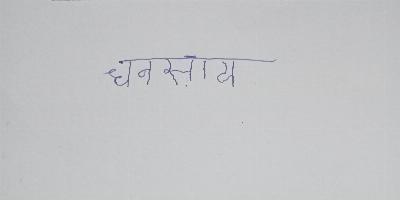 धनसाय